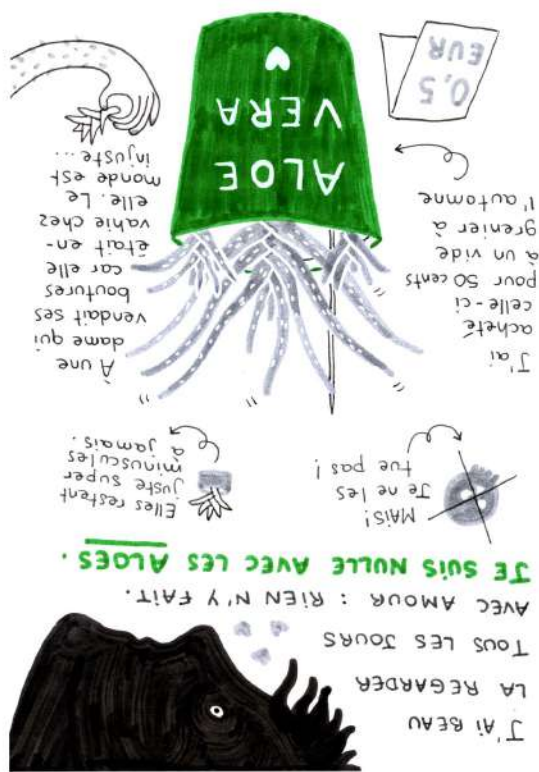 J'AI BEAU
LA REGARDER
TOUS LES JOURS
AVEC AMOUR : RIEN N'Y FAIT.
JE SUIS NULLE AVEC LES ALOES.
MAIS!
Je ne les
tue pas!
Elles restent
juste super
minuscules
à jamais.
J'ai
acheté
celle-ci
pour 50 cents
à un vide
grenier à
l'automne
À une
dame qui
vendait ses
boutures
car elle
était en-
vahie chez
elle. Le
monde est
injuste...
ALOE
VERA
0,5
EUR